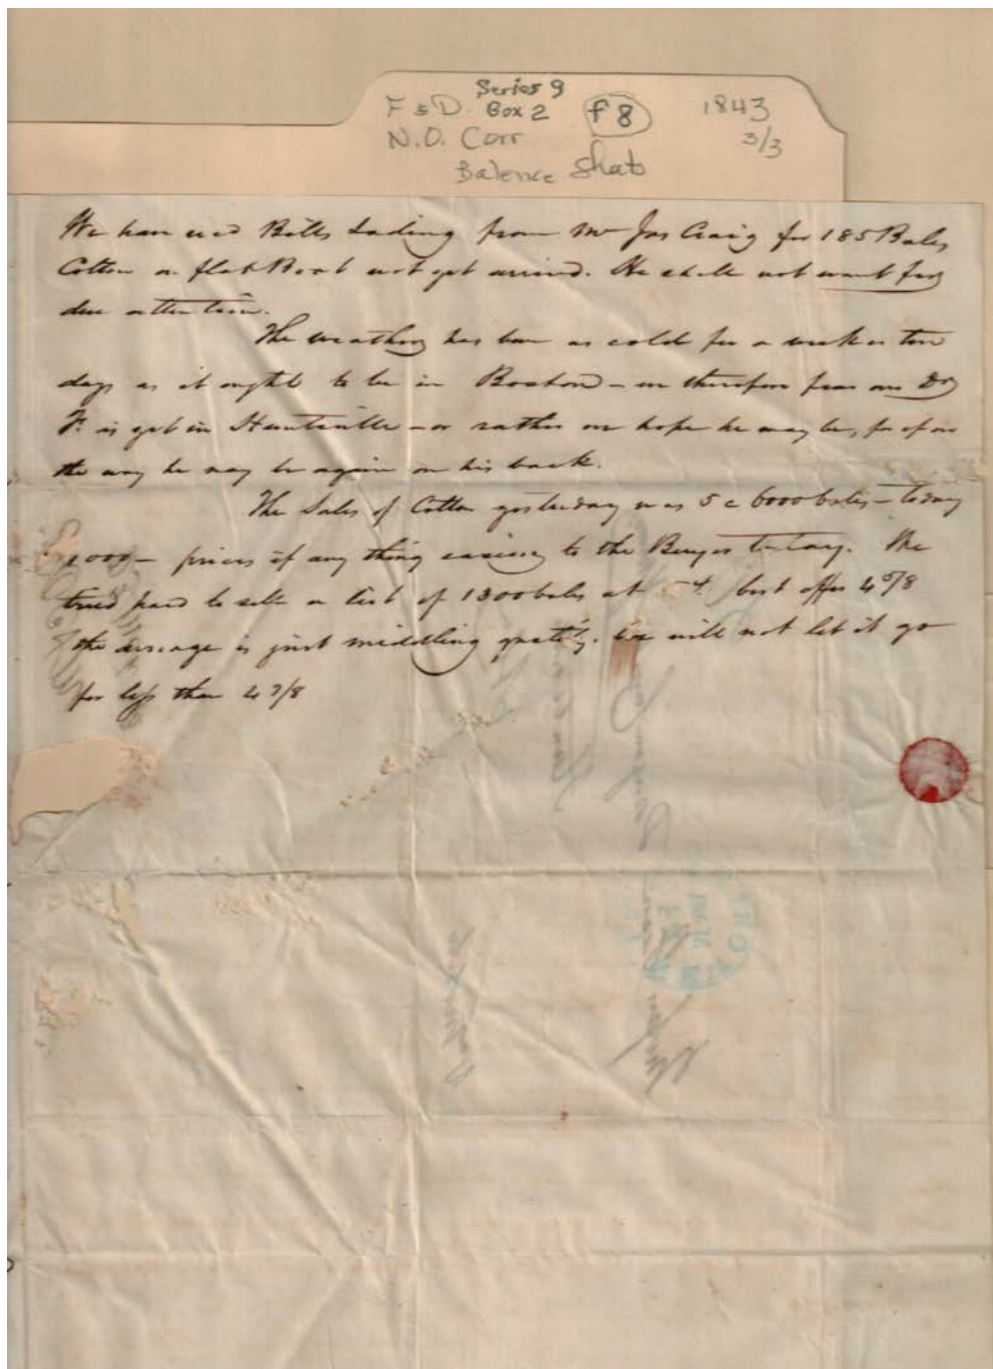 Series 9
F & D. Box 2 f 8 1843
N.O. Corr 3/3
Balence Shat
We have recd Bills Lading from Mr Jas Craig for 185 Bales
Cotton on flat Boat not yet arrived. He shall not want for
due attention.
The weather has been as cold for a week or ten
days as it ought to be in Boston — we therefore fear our Dr
F. is yet in Huntsville — or rather we hope he may be, for if on
the way he may be again on his back.
The Sales of Cotton yesterday was 5 a 6000 bales — today
000 — prices if any thing easier to the Buyers to day. We
tried hard to sell a list of 1300 bales at best offer 4 5/8
the average is just middling quality. We will not let it go
for less than 4 7/8